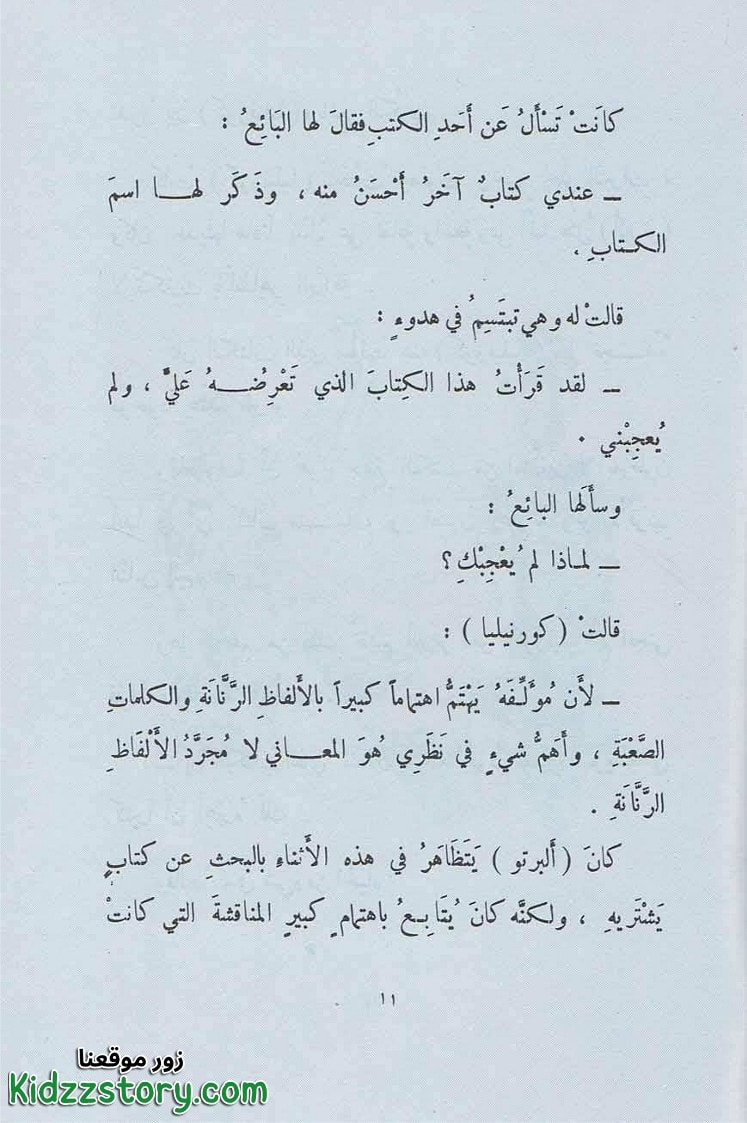 كانَتْ تَسْأَلُ عَن أَحَدِ الكتبِ فقالَ لها البَائِعُ :
ــ عندي كتابٌ آخَرُ أَحْسَنُ منه ، وذَكَر لهــا اسمَ
الكتابِ .
قالتْ له وهي تبتَسِمُ في هدوءٍ :
ــ لقد قَرَأْتُ هذا الكِتابَ الذي تَعْرِضُــهُ عَليَّ ، ولم
يُعجِبْني .
وسأَلَها البائِعُ :
ــ لماذا لم يُعْجِبْكِ ؟
قالتْ ( كورنيليا ) :
ــ لأَن مُؤَلِّفَهُ يَهْتَمُّ اهتماماً كبيراً بالأَلفاظِ الرَّنَّانَةِ والكلماتِ
الصَّعْبَةِ ، وأَهَمُّ شيءٍ في نَظَرِي هُوَ المعــاني لا مُجَرَّدُ الأَلْفَاظِ
الرَّنَّانَةِ .
كانَ ( ألبرتو ) يَتَظَاهَرُ في هذه الأَثناءِ بالبحثِ عن كتابٍ
يَشْتَريهِ ، ولكنَّه كانَ يُتَابِعُ باهتمامٍ كبيرٍ المناقشةَ التي كانتْ
١١
زور موقعنا
Kidzzstory.com